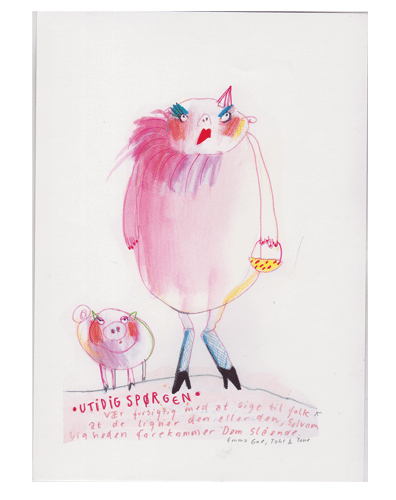 •UTIDIG SPØRGEN•
VÆr forsigtig med at sige til folk
at de ligner den eller den, selvom
ligheden forekommer Dem slående
Emma Gad, Tobi & Tone